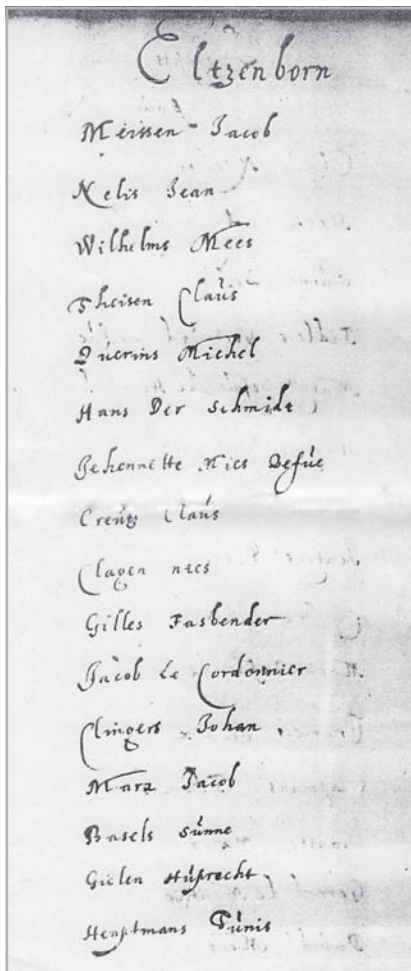 Eltzenborn
Meissen Jacob
Nelis Jean
Wilhelms Mees
Theisen Claus
Querins Michel
Hans Der Schmidt
Jehennette Nies Defüe
Creütz Claus
Clagen nies
Gilles Fasbender
Jacob Le Cordonnier
Clingers Johan
Marx Jacob
Basels Sünne
Gielen Hüprecht
Heuptmans Tünis